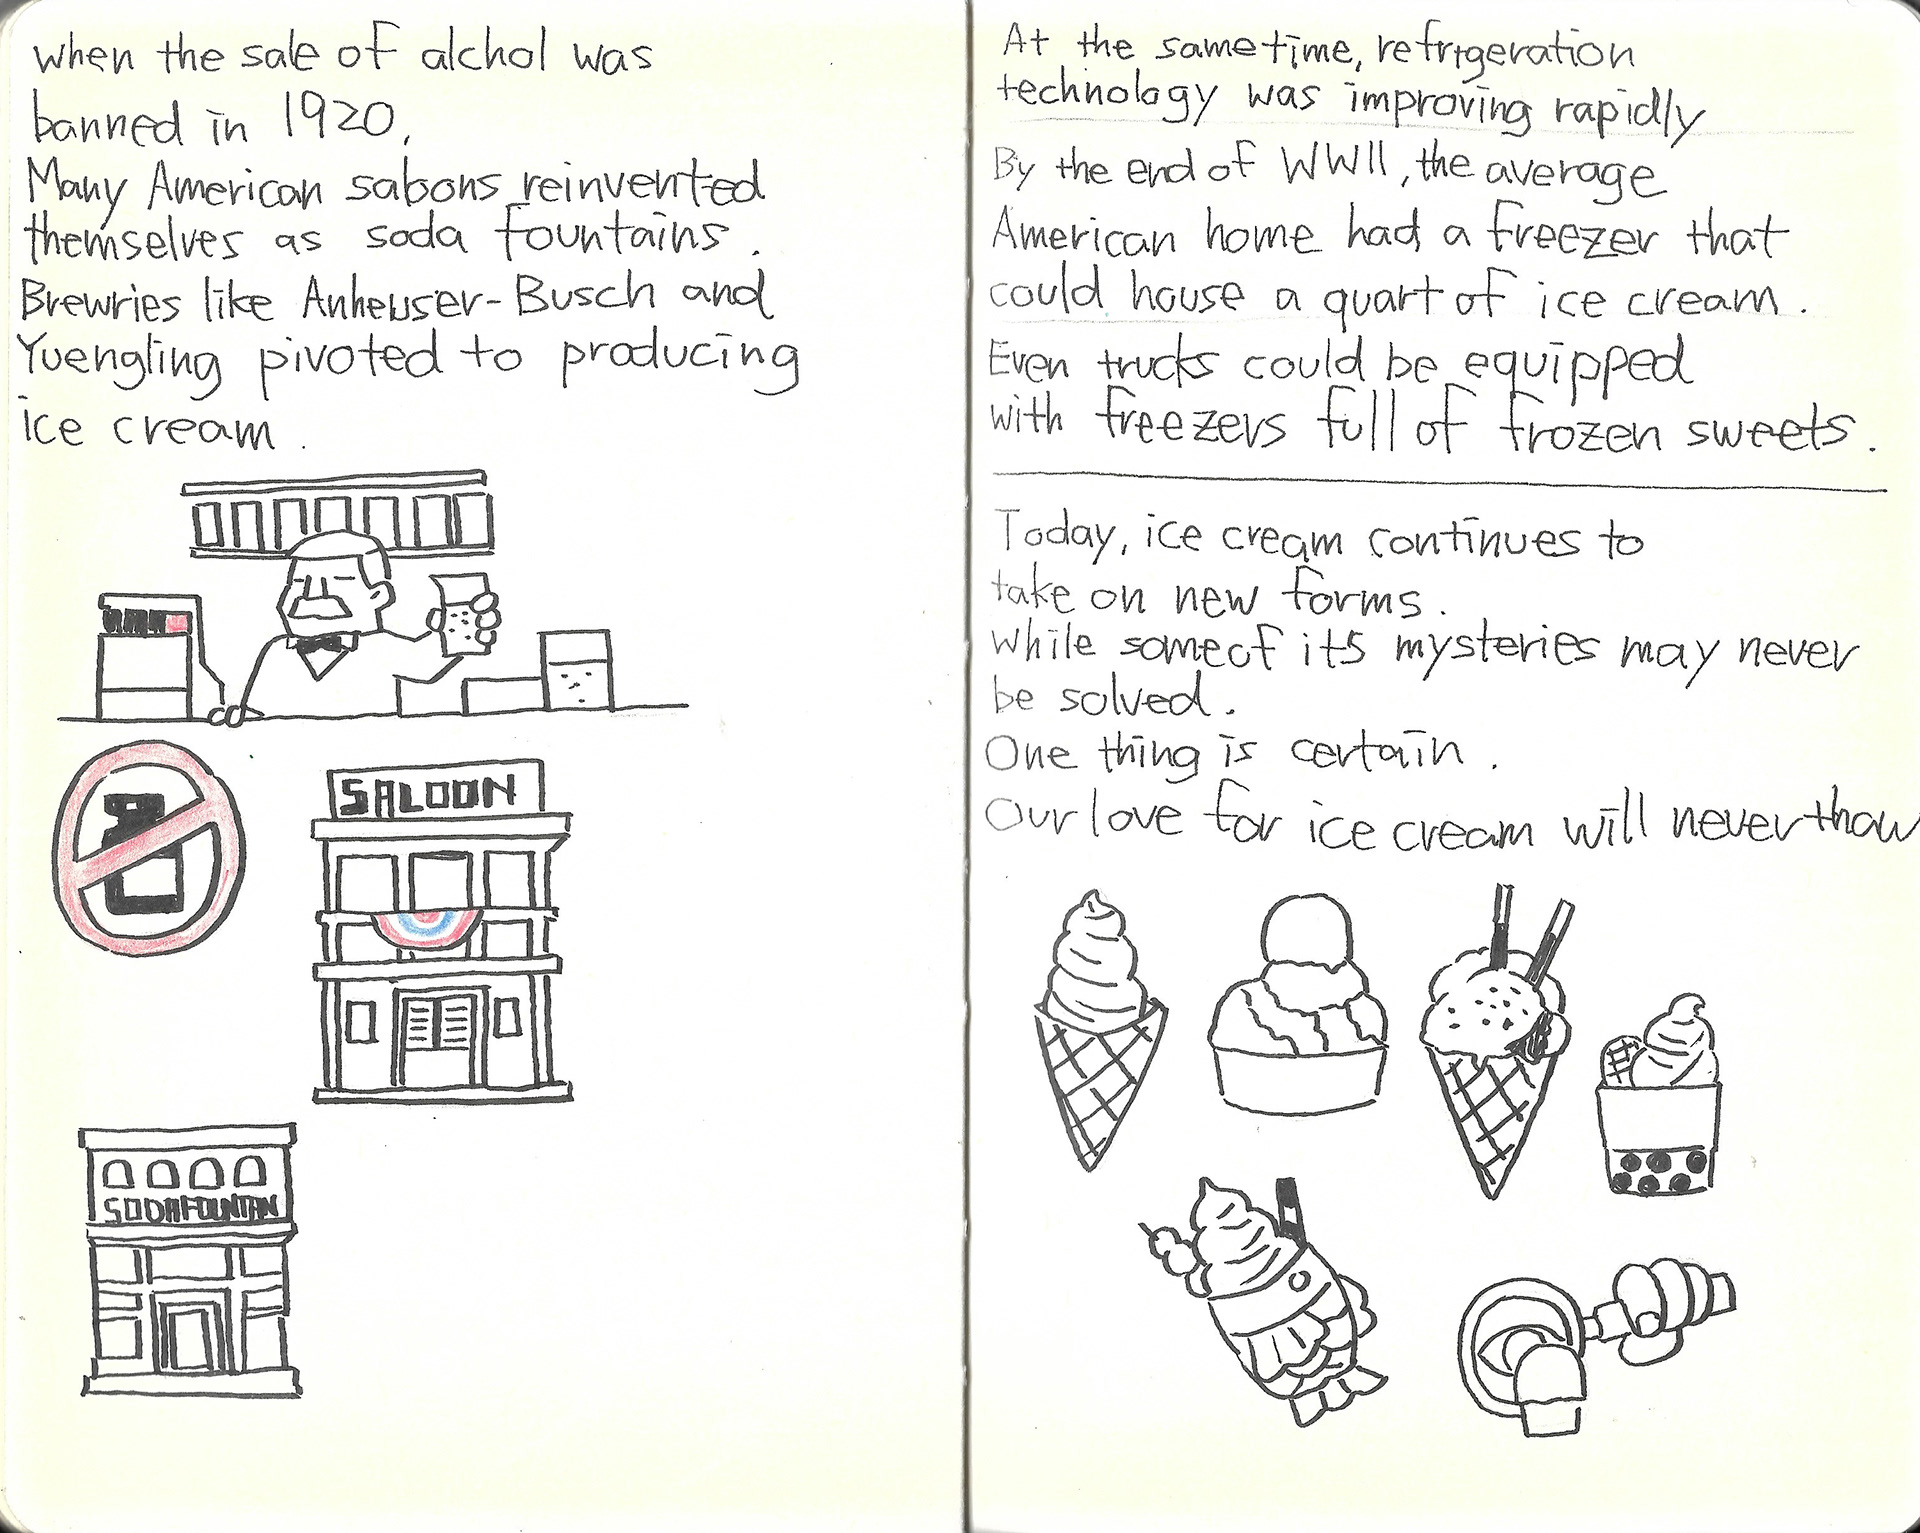 when the sale of alchol was
banned in 1920,
Many American sabons reinvented
themselves as soda fountains.
Brewries like Anheuser-Busch and
Yuengling pivoted to producing
ice cream.
SALOON
SODAFOUNTAN
At the same time, refrigeration
technology was improving rapidly
By the end of WWII, the average
American home had a freezer that
could house a quart of ice cream.
Even trucks could be equipped
with freezers full of frozen sweets.
Today, ice cream continues to
take on new forms.
While some of its mysteries may never
be solved.
One thing is certain.
Our love for ice cream will never thaw